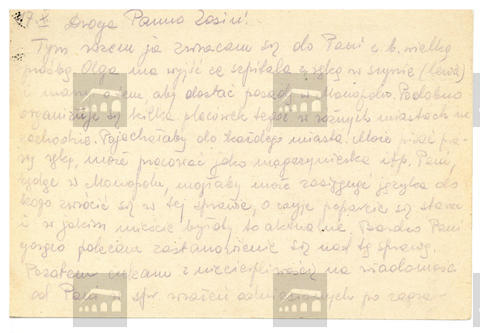 17.X. Droga Panno Zosiu!
Tym razem ja zwracam się do Pani z b. wielką
prośbą. Olga ma wyjść ze szpitala z ręką w szynie (lewa)
i marzy o tem, aby dostać posadę w Monopolu. Podobno
organizuje się kilka placówek teraz w różnych miastach na
zachodzie. Pojechałaby do każdego miasta. Może pisać pra-
wą ręką, może pracować jako magazynierka itp. Pani,
będąc w Monopolu, mogłaby może zasięgnąć języka do
kogo zwrócić się w tej sprawie, o czyje poparcie się starać
i w jakim mieście byłoby to aktualne. Bardzo Pani
gorąco polecam zastanowienie się nad tą sprawą.
Pozatem czekam z niecierpliwością na wiadomości
od Pani w spr. wrażeń